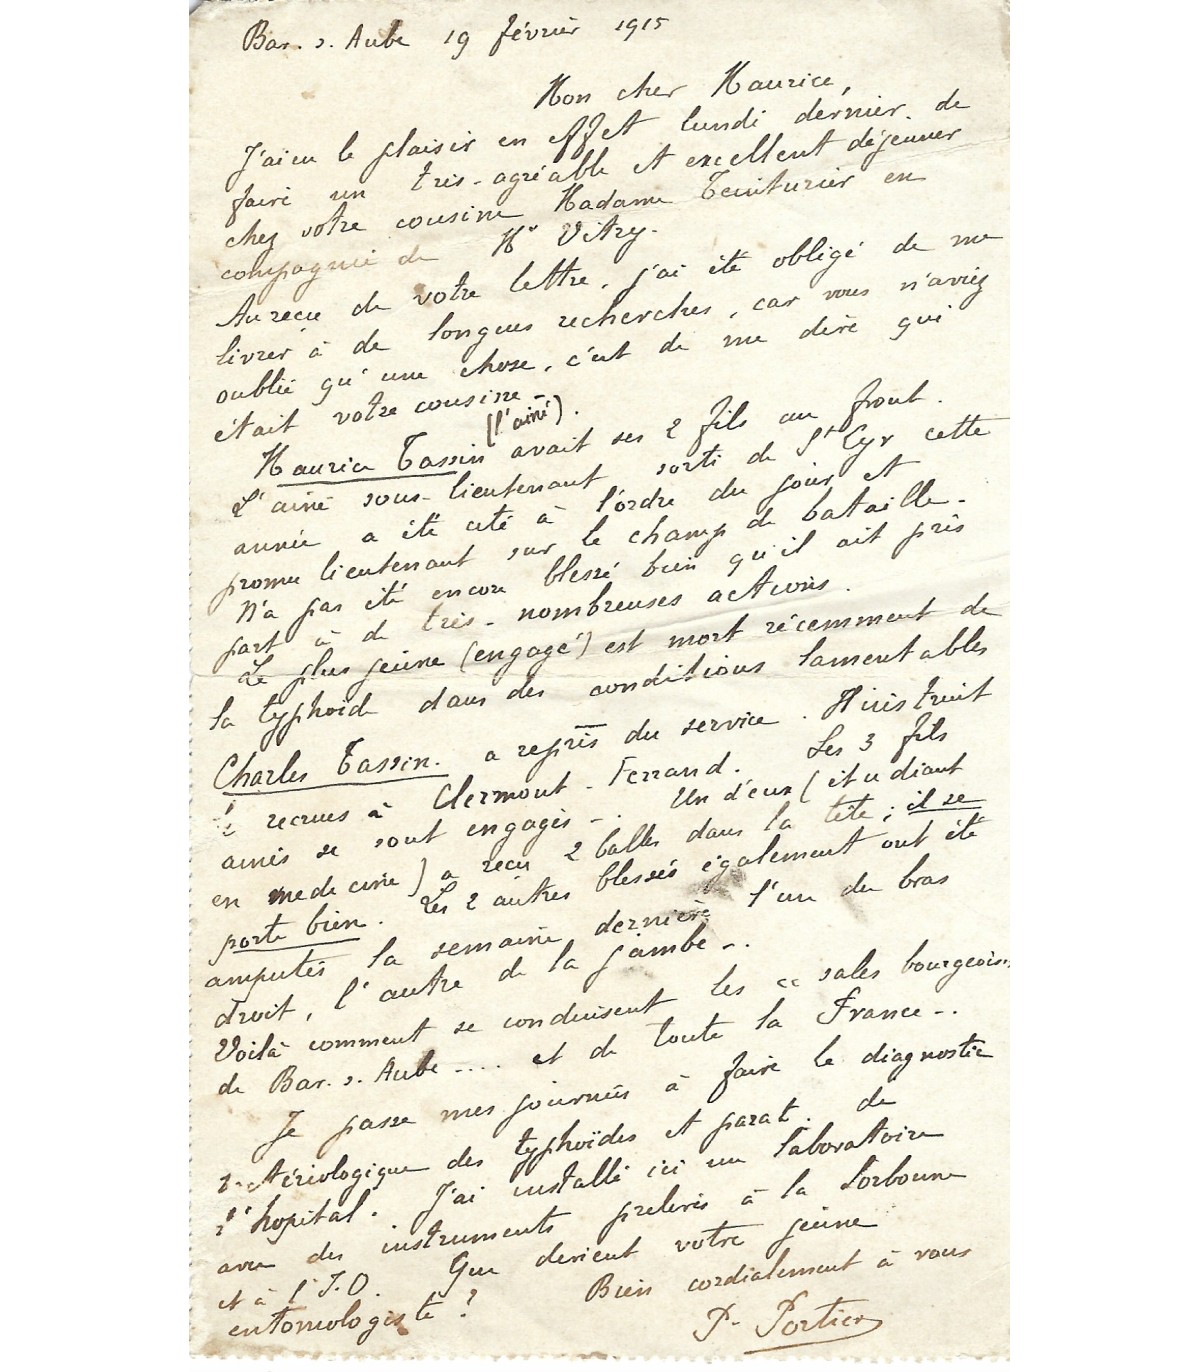 Bar. s. Aube 19 février 1915
Mon cher Maurice,
J'ai eu le plaisir en effet lundi dernier de
faire un très-agréable et excellent déjeuner
chez votre cousine Madame Teinturier en
compagnie de Mr Vitry.
Au reçu de votre lettre, j'ai été obligé de me
livrer à de longues recherches, car vous n'aviez
oublié qu'une chose, c'est de me dire qui
était votre cousine -
Maurice Tassin (l'aîné) avait ses 2 fils au front.
L'aîné sous-lieutenant sorti de St Cyr cette
année a été cité à l'ordre du jour et
promu lieutenant sur le champ de bataille -
N'a pas été encore blessé bien qu'il ait pris
part à de très-nombreuses actions.
Le plus jeune (engagé) est mort récemment de
la typhoïde dans des conditions lamentables
Charles Tassin. a repris du service. Il instruit
recrues à Clermont-Ferrand. Les 3 fils
aînés se sont engagés -. Un d'eux (étudiant
en médecine) a reçu 2 balles dans la tête; il se
porte bien. Les 2 autres blessés également ont été
amputés la semaine dernière l'un du bras
droit, l'autre de la jambe -.
Voilà comment se conduisent les "sales bourgeois"
de Bar. s. Aube .... et de toute la France -.
Je passe mes journées à faire le diagnostic
bactériologique des typhoïdes et parat. de
l'hopital. J'ai installé ici un laboratoire
avec des instruments prélevés à la Sorbonne
et à l'I.O. Que devient votre jeune
entomologiste ? Bien cordialement à vous
P. Portier